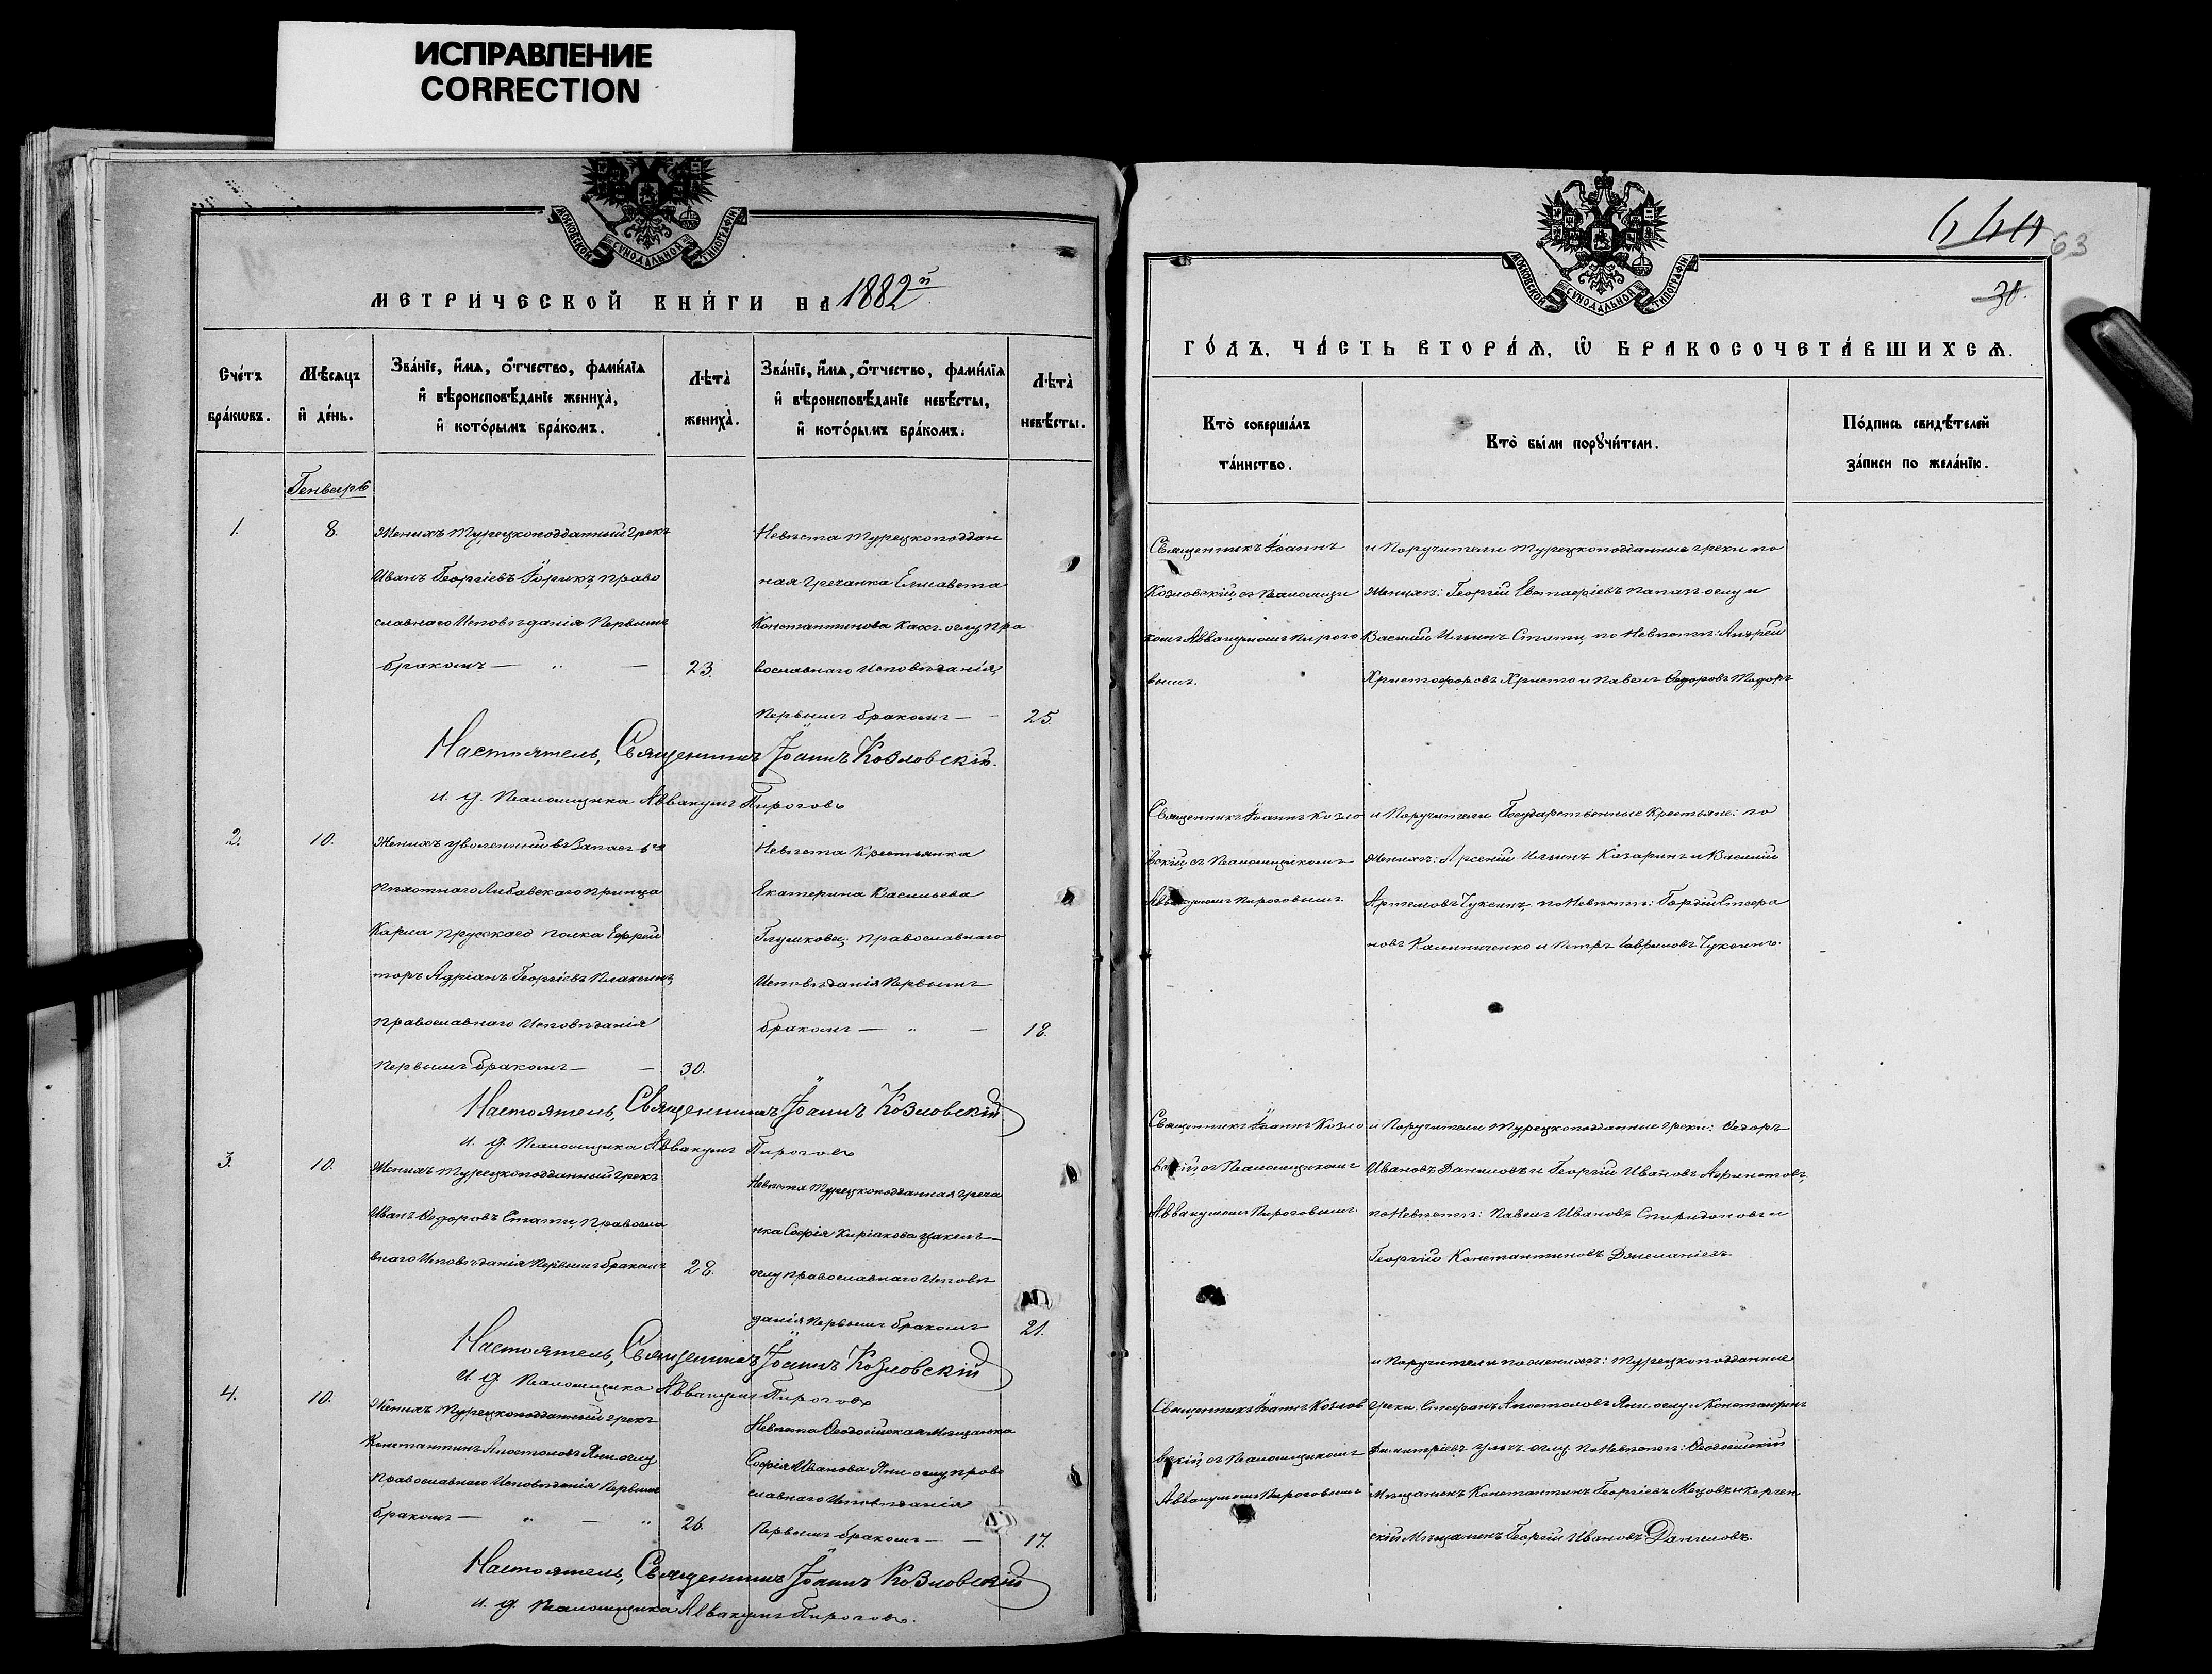 ИСПРАВЛЕНИЕ
CORRECTION
МОСКОВСКОЙ СѴНОДАЛЬНОЙ ТИПОГРАФІИ
МЕТРИЧЕСКОЙ КНИ́ГИ НА 1882й
Сче́тъ бра́кωвъ.
Мѣ́сяцъ и҆ де́нь.
Зва́нїе, и҆́мѧ, ѻ҆́тчество, фами́лїѧ
и҆ вѣроисповѣ́данїе жениха̀,
и҆ кото́рымъ бра́комъ.
Лѣта̀ жениха̀.
Зва́нїе, и҆́мѧ, ѻ҆́тчество, фами́лїѧ
и҆ вѣроисповѣ́данїе невѣ́сты,
и҆ кото́рымъ бра́комъ.
Лѣта̀ невѣ́сты.
Генварь
1.
8.
Женихъ Турецкоподданный Грекъ
Иванъ Георгіевъ Іорикъ, право
славнаго Исповѣданія Первымъ
бракомъ — „ —
23.
Невѣста Турецкоподдан
ная Гречанка Елисавета
Константинова оглу, Пра
вославнаго Исповѣданія,
Первымъ бракомъ — —
25.
Настоятель, Священникъ Іоаннъ Козловскій.
И. д. Псаломщика Аввакумъ Пироговъ
2.
10.
Женихъ уволенный въ Запасъ 6го
Пѣхотнаго Либавскаго Принца
Карла Прусскаго полка Ефрей
торъ Адріанъ Георгіевъ Плаксинъ,
Православнаго Исповѣданія
Первымъ бракомъ — —
30.
Невѣста Крестьянка
Екатерина Васильева
Глушкова, Православнаго
Исповѣданія Первымъ
бракомъ — „ —
18.
Настоятель, Священникъ Іоаннъ Козловскій
И. д. Псаломщика Аввакумъ Пироговъ
3.
10.
Женихъ Турецкоподданный Грекъ
Иванъ Ѳедоровъ Стати, Правосла
внаго Исповѣданія Первымъ бракомъ
28.
Невѣста Турецкоподданная Греча
нка Софія Киріакова
оглу Православнаго Исповѣ
данія Первымъ бракомъ
21.
Настоятель, Священникъ Іоаннъ Козловскій
И. д. Псаломщика Аввакумъ Пироговъ
4.
10.
Женихъ Турецкоподданный Грекъ
Константинъ Апостоловъ Яни-оглу
Православнаго Исповѣданія Первымъ
бракомъ — „ — „
26.
Невѣста Ѳеодосійская Мѣщанка
Софія Иванова Яни-оглу, право
славнаго Исповѣданія
Первымъ бракомъ — —
17.
Настоятель, Священникъ Іоаннъ Козловскій
И. д. Псаломщика Аввакумъ Пироговъ.
МОСКОВСКОЙ СѴНОДАЛЬНОЙ ТИПОГРАФІИ
63
30.
ГО́ДЪ, ЧА́СТЬ ВТОРА́Ѧ, Ѽ БРАКОСОЧЕТА́ВШИХСѦ.
Кто̀ соверша́лъ
та́инство.
Кто̀ бы́ли порꙋчи́тели.
По́дпись свидѣ́телей
за́писи по жела́нїю.
Священникъ Іоаннъ
Козловскій, съ Псаломщи
комъ Аввакумомъ Пирого
вымъ.
и Поручители Турецкоподданные Греки по
Женихѣ: Георгій Евстафіевъ оглу и
Василій Ильинъ Стати, по Невѣстѣ: Андрей
Христофоровъ Христо и Павелъ Ѳедоровъ Тодоръ
Священникъ Іоаннъ Козло
вскій, съ Псаломщикомъ
Аввакумомъ Пироговымъ.
и Поручители Государственные Крестьяне: по
Женихѣ: Арсеній Ильинъ Казаринъ и Василій
Артемовъ Чуксинъ, по Невѣстѣ: Гордій Стефа
новъ Калиниченко и Петръ Гавриловъ Чуксинъ.
Священникъ Іоаннъ Козло
вскій съ Псаломщикомъ
Аввакумомъ Пироговымъ.
и Поручители Турецкоподданные Греки: Ѳедоръ
Ивановъ Даниловъ и Георгій Ивановъ
по Невѣстѣ: Павелъ Ивановъ Спиридоновъ и
Георгій Константиновъ
Священникъ Іоаннъ Козлов
вскій, съ Псаломщикомъ
Аввакумомъ Пироговымъ
и Поручители по женихѣ: Турецкоподданные
Греки, Стефанъ Апостоловъ Яни-оглу и Константинъ
Димитріевъ оглу, по Невѣстѣ: Ѳеодосійскій
Мѣщанинъ Константинъ Георгіевъ и Керчен
скій Мѣщанинъ Георгій Ивановъ Даниловъ.